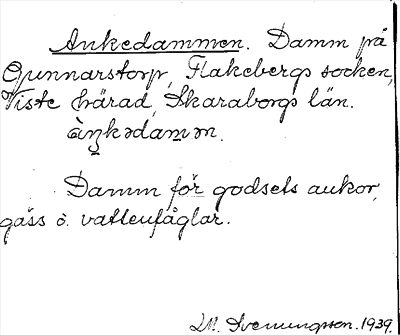 Ankedammen. Damm på
Gunnarstorp, Flakebergs socken,
Viste härad, Skaraborgs län.
Damm för godsets ankor,
gäss o. vattenfåglar.
Svenungsson. 1939.